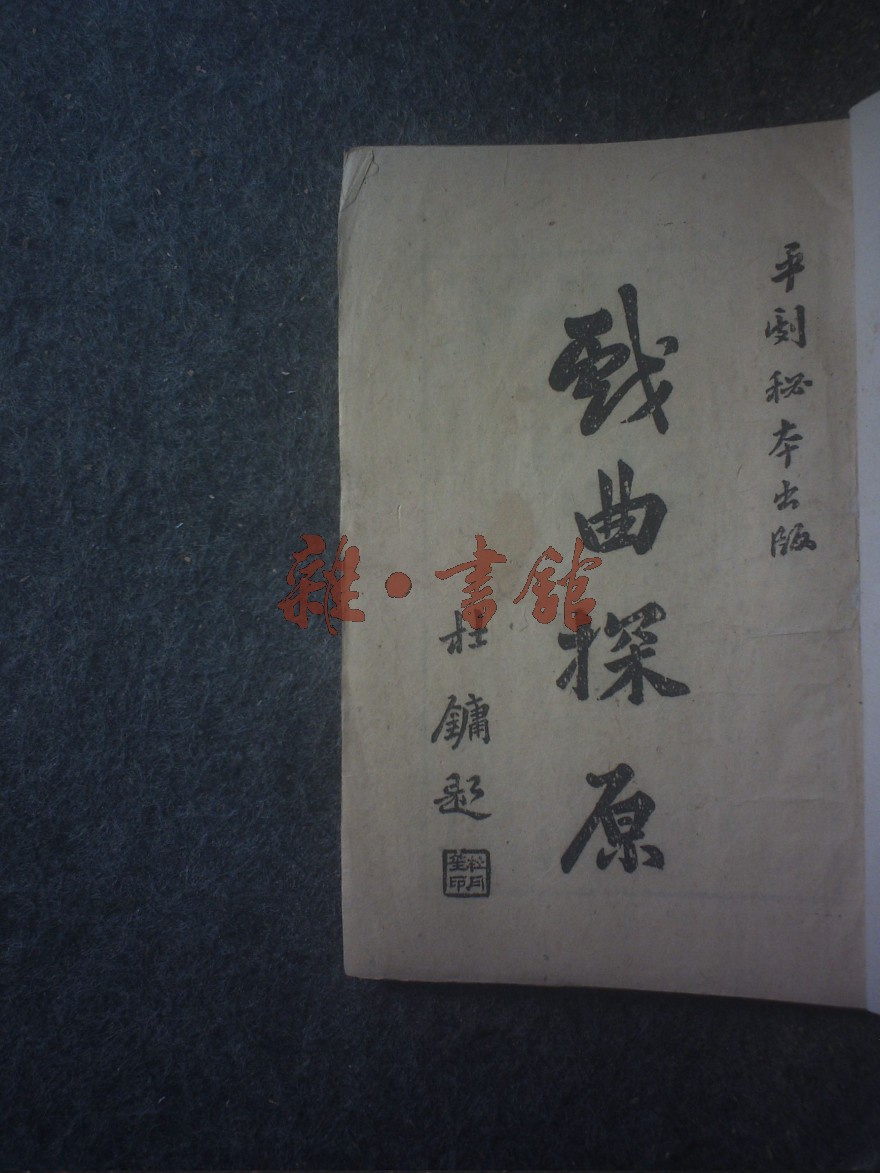 平劇秘本出版
戲曲探原
杜鏞題
杜月笙印
雜·書館